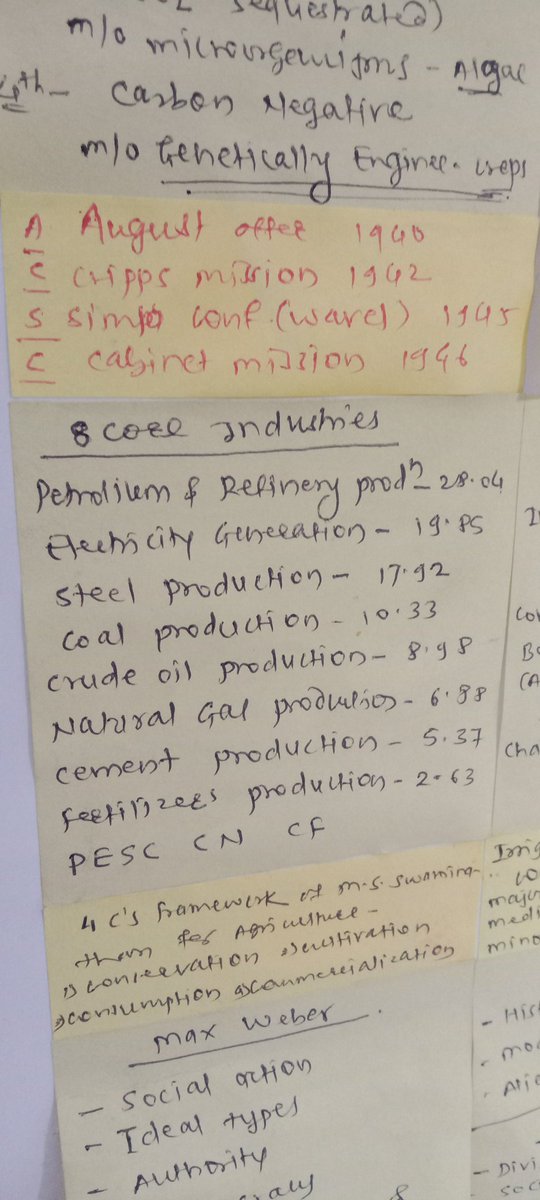 sequestrated)
m/o microorganisms - Algae
4th - Carbon Negative
m/o Genetically Enginee. crops
A August offer 1940
C cripps mission 1942
S simla conf. (wavel) 1945
C cabinet mission 1946
8 core Industries
Petrolium & Refinery prodn - 28.04
Electricity Generation - 19.85
Steel production - 17.92
coal production - 10.33
crude oil production - 8.98
Natural Gas production - 6.88
cement production - 5.37
fertilizers production - 2.63
PESC CN CF
4 C's framework of M.S. Swamina-
than for Agriculture -
1) conservation 2) cultivation
3) consumption 4) commercialization
Max Weber
- Social action
- Ideal types
- Authority
Irrig
majo
medi
mino
- Hist
- mod
- Alie
- Divi
- Soc
Cha